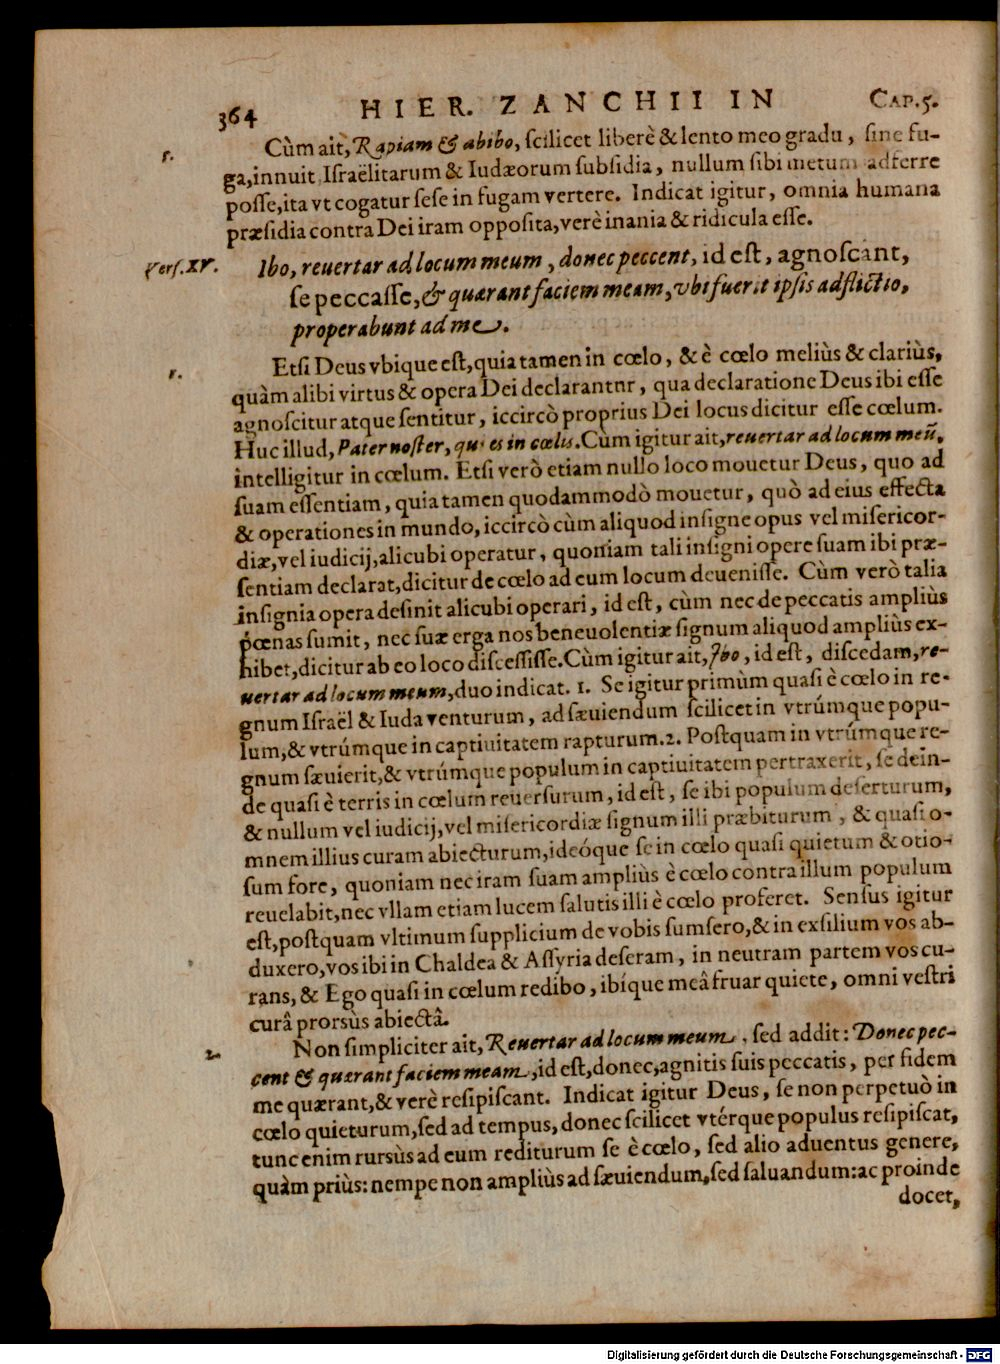 364 HIER. ZANCHII IN CAP. 5.
Cùm ait, Rapiam & abibo, ſcilicet liberè & lento meo gradu, ſine fu-
ga, innuit Iſraëlitarum & Iudæorum ſubſidia, nullum ſibi metum adferre
poſſe, ita vt cogatur ſeſe in fugam vertere. Indicat igitur, omnia humana
præſidia contra Dei iram oppoſita, verè inania & ridicula eſſe.
Verſ. XV. Ibo, reuertar ad locum meum, donec peccent, id eſt, agnoſcant,
ſe peccaſſe, & quærant faciem meam, vbi fuerit ipſis adflictio,
properabunt ad me.
1. Etſi Deus vbique eſt, quia tamen in cœlo, & è cœlo meliùs & clariùs,
quàm alibi virtus & opera Dei declarantur, qua declaratione Deus ibi eſſe
agnoſcitur atque ſentitur, iccircò proprius Dei locus dicitur eſſe cœlum.
Huc illud, Pater noſter, qui es in cœlis. Cùm igitur ait, reuertar ad locum meũ,
intelligitur in cœlum. Etſi verò etiam nullo loco mouetur Deus, quo ad
ſuam eſſentiam, quia tamen quodammodò mouetur, quò ad eius effecta
& operationes in mundo, iccircò cùm aliquod inſigne opus vel miſericor-
diæ, vel iudicij, alicubi operatur, quoniam tali inſigni opere ſuam ibi præ-
ſentiam declarat, dicitur de cœlo ad eum locum deueniſſe. Cùm verò talia
inſignia opera deſinit alicubi operari, id eſt, cùm nec de peccatis ampliùs
pœnas ſumit, nec ſuæ erga nos beneuolentiæ ſignum aliquod ampliùs ex-
hibet, dicitur ab eo loco diſceſſiſſe. Cùm igitur ait, Ibo, id eſt, diſcedam, re-
uertar ad locum meum, duo indicat. 1. Se igitur primùm quaſi è cœlo in re-
gnum Iſraël & Iuda venturum, ad ſæuiendum ſcilicet in vtrúmque popu-
lum, & vtrúmque in captiuitatem rapturum. 2. Poſtquam in vtrúmque re-
gnum ſæuierit, & vtrúmque populum in captiuitatem pertraxerit, ſe dein-
de quaſi è terris in cœlum reuerſurum, id eſt, ſe ibi populum deſerturum,
& nullum vel iudicij, vel miſericordiæ ſignum illi præbiturum, & quaſi o-
mnem illius curam abiecturum, ideóque ſe in cœlo quaſi quietum & otio-
ſum fore, quoniam nec iram ſuam ampliùs è cœlo contra illum populum
reuelabit, nec vllam etiam lucem ſalutis illi è cœlo proferet. Senſus igitur
eſt, poſtquam vltimum ſupplicium de vobis ſumſero, & in exſilium vos ab-
duxero, vos ibi in Chaldea & Aſſyria deſeram, in neutram partem vos cu-
rans, & Ego quaſi in cœlum redibo, ibíque meâ fruar quiete, omni veſtri
curâ prorsùs abiectâ.
2. Non ſimpliciter ait, Reuertar ad locum meum, ſed addit: Donec pec-
cent & quærant faciem meam, id eſt, donec, agnitis ſuis peccatis, per fidem
me quærant, & verè reſipiſcant. Indicat igitur Deus, ſe non perpetuò in
cœlo quieturum, ſed ad tempus, donec ſcilicet vtérque populus reſipiſcat,
tunc enim rursùs ad eum rediturum ſe è cœlo, ſed alio aduentus genere,
quàm priùs: nempe non ampliùs ad ſæuiendum, ſed ſaluandum: ac proinde
docet,
Digitalisierung gefördert durch die Deutsche Forschungsgemeinschaft - DFG